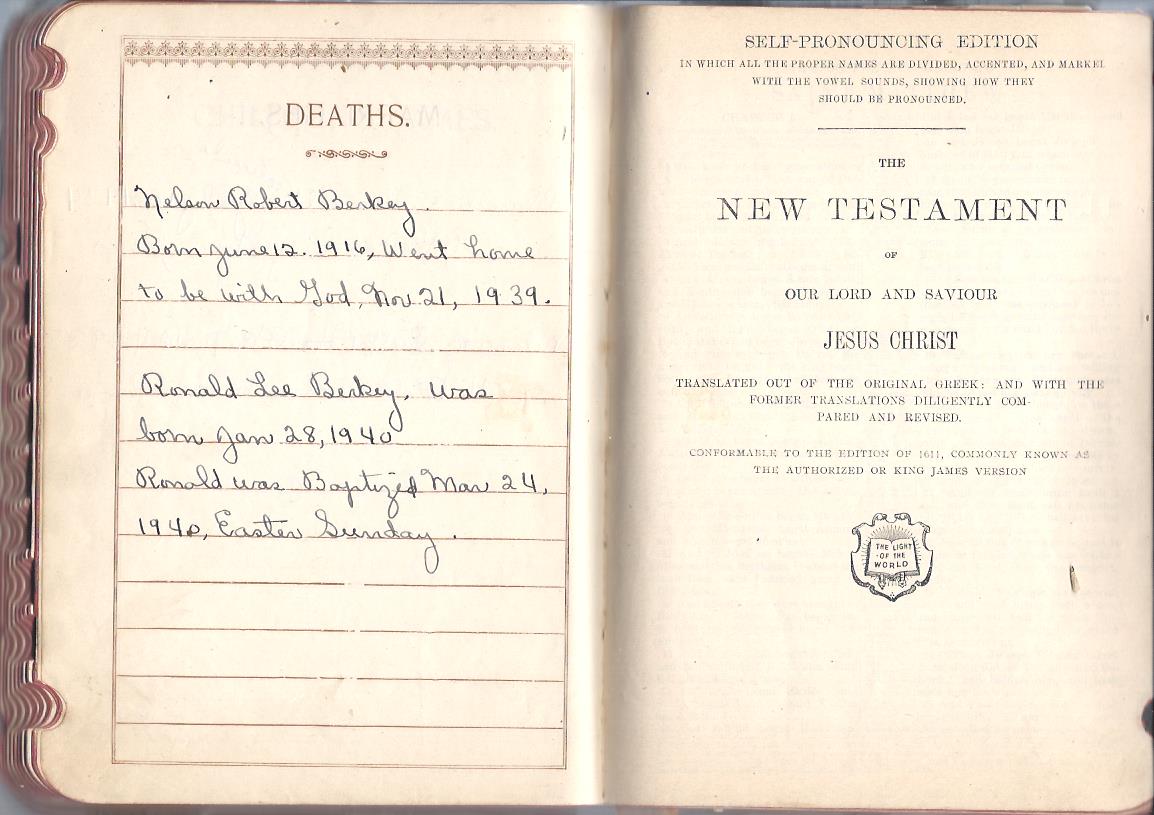 DEATHS.
Nelson Robert Berkey.
Born June 12. 1916, Went home
to be with God, Nov. 21, 1939.
Ronald Lee Berkey, was
born Jan 28, 1940
Ronald was Baptized Mar 24,
1940, Easter Sunday.
SELF-PRONOUNCING EDITION
IN WHICH ALL THE PROPER NAMES ARE DIVIDED, ACCENTED, AND MARKED
WITH THE VOWEL SOUNDS, SHOWING HOW THEY
SHOULD BE PRONOUNCED.
THE
NEW TESTAMENT
OF
OUR LORD AND SAVIOUR
JESUS CHRIST
TRANSLATED OUT OF THE ORIGINAL GREEK: AND WITH THE
FORMER TRANSLATIONS DILIGENTLY COM-
PARED AND REVISED.
CONFORMABLE TO THE EDITION OF 1611, COMMONLY KNOWN AS
THE AUTHORIZED OR KING JAMES VERSION
THE LIGHT
OF THE
WORLD